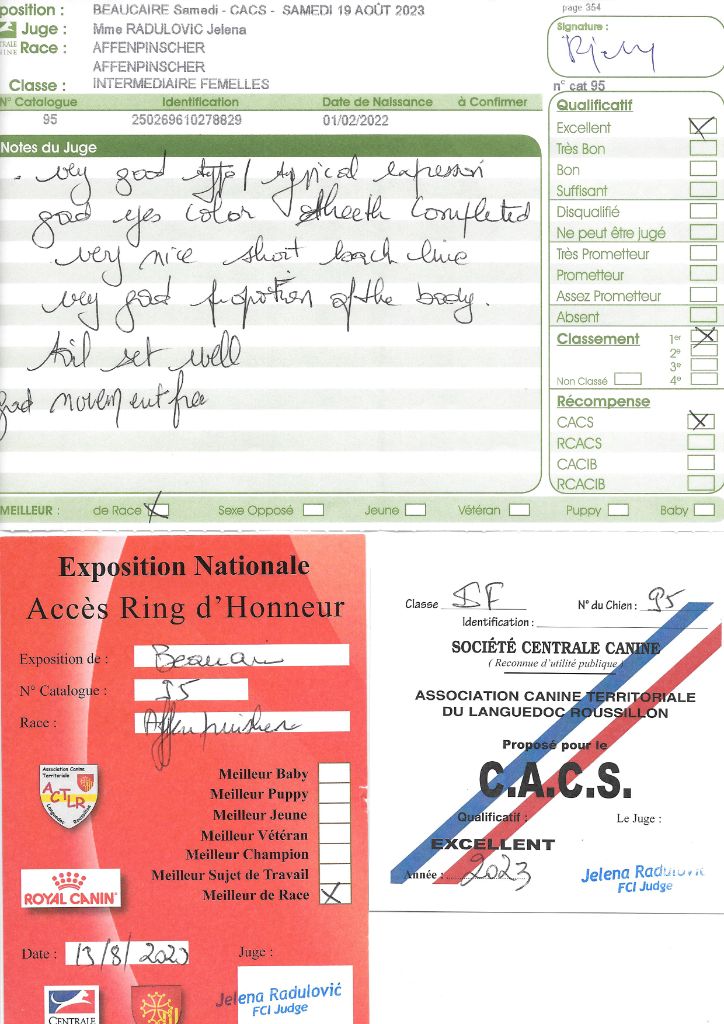 position : BEAUCAIRE Samedi - CACS - SAMEDI 19 AOÛT 2023
page 354
Juge : Mme RADULOVIC Jelena
Signature :
Race : AFFENPINSCHER
AFFENPINSCHER
Classe : INTERMEDIAIRE FEMELLES
n° cat 95
N° Catalogue Identification Date de Naissance à Confirmer
95 250269610278829 01/02/2022
Notes du Juge
. very good type / typical expression
good yes color theeth completed
very nice short back line
very good propotion of the body.
tail set well
good movement free
Qualificatif
Excellent
Très Bon
Bon
Suffisant
Disqualifié
Ne peut être jugé
Très Prometteur
Prometteur
Assez Prometteur
Absent
Classement 1er
2e
3e
Non Classé 4e
Récompense
CACS
RCACS
CACIB
RCACIB
MEILLEUR : de Race Sexe Opposé Jeune Vétéran Puppy Baby
Exposition Nationale
Accès Ring d'Honneur
Exposition de : Beaucaire
N° Catalogue : 95
Race : Affenpinscher
Association Canine
Territoriale
ACTLR
Languedoc Roussillon
Meilleur Baby
Meilleur Puppy
Meilleur Jeune
Meilleur Vétéran
Meilleur Champion
Meilleur Sujet de Travail
Meilleur de Race
ROYAL CANIN
Date : 13/8/2023 Juge :
Jelena Radulović
FCI Judge
CENTRALE
Classe IF N° du Chien : 95
Identification :
SOCIÉTÉ CENTRALE CANINE
( Reconnue d'utilité publique )
ASSOCIATION CANINE TERRITORIALE
DU LANGUEDOC ROUSSILLON
Proposé pour le
C.A.C.S.
Qualificatif : Le Juge :
EXCELLENT
Année : 2023
Jelena Radulović
FCI Judge